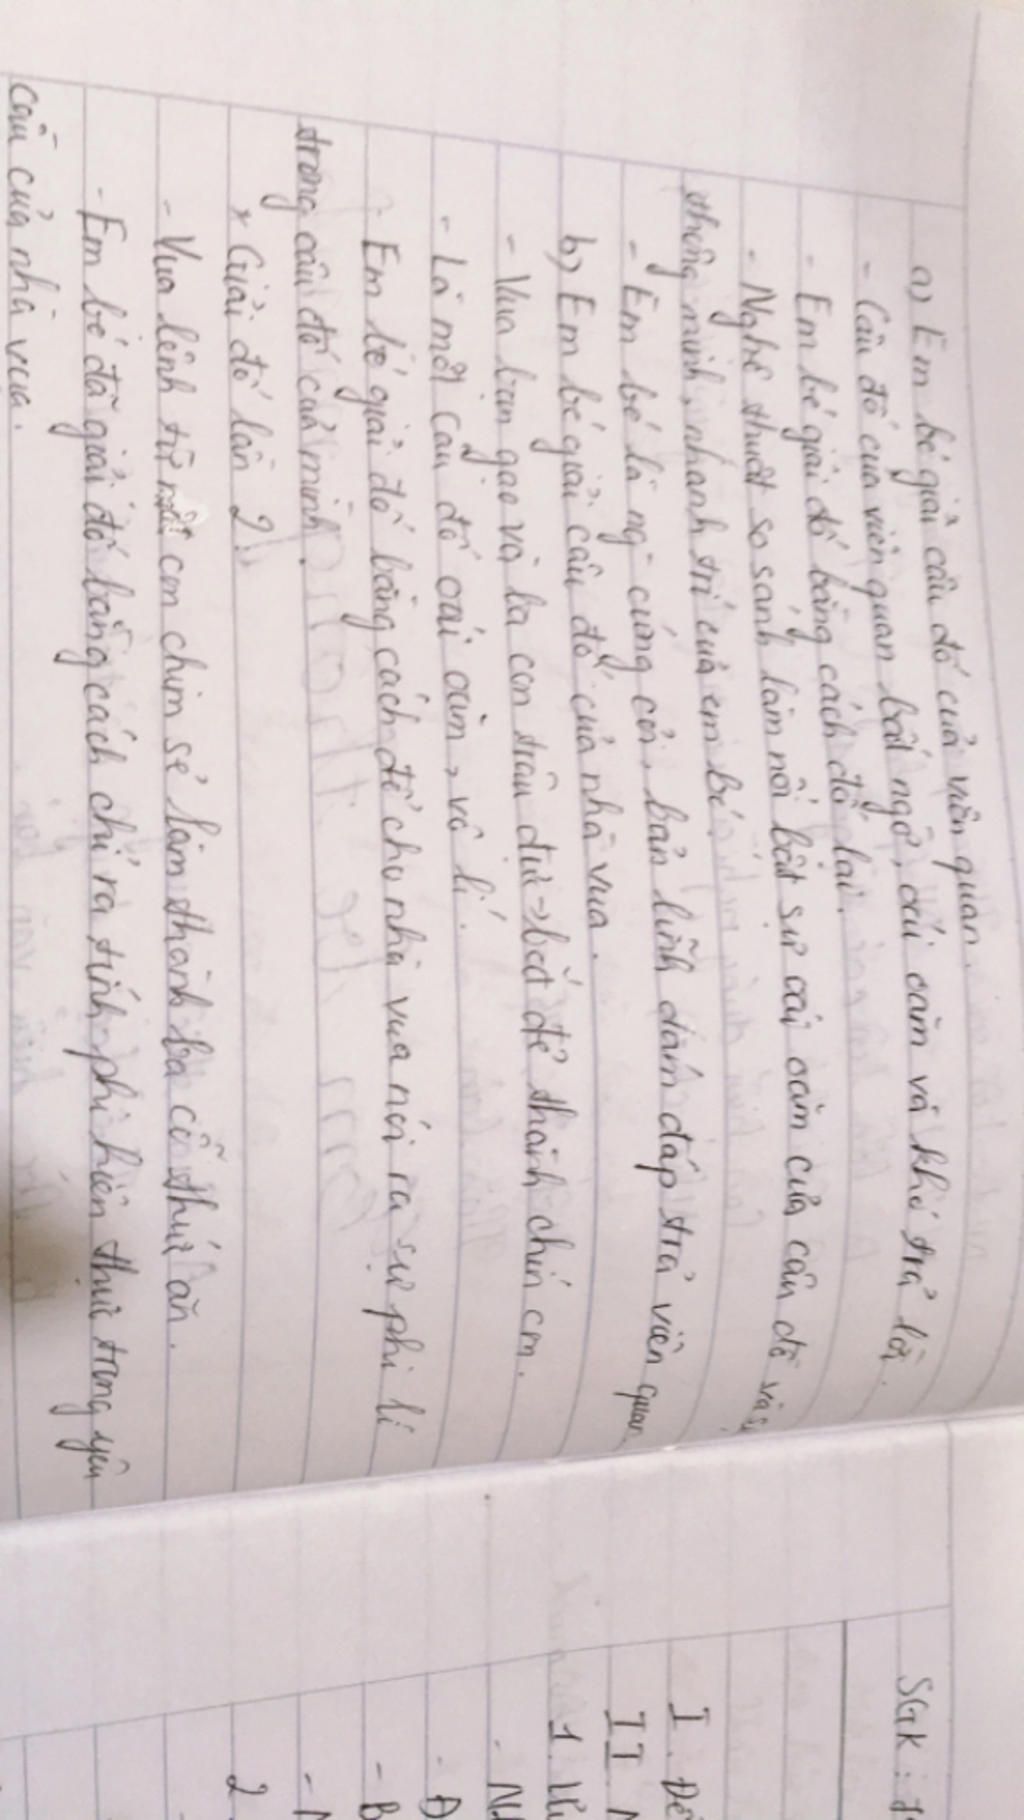 a) Em bé giải câu đố của viên quan.
- Câu đố của viên quan bất ngờ, oái oăm và khó trả lời.
- Em bé giải đố bằng cách đố lại.
- Nghệ thuật so sánh làm nổi bật sự oái oăm của câu đố và sự
thông minh, nhanh trí của em bé.
- Em bé là ng cứng cỏi, bản lĩnh dám đáp trả viên quan.
b) Em bé giải câu đố của nhà vua.
- Vua ban gạo và ba con trâu đực → bắt đẻ thành chín con.
- Là một câu đố oái oăm, vô lí.
- Em bé giải đố bằng cách để cho nhà vua nói ra sự phi lí
trong câu đố của mình.
* Giải đố lần 2:
- Vua lệnh từ một con chim sẻ làm thành ba cỗ thức ăn.
- Em bé đã giải đố bằng cách chỉ ra tính phi hiện thực trong yêu
cầu của nhà vua.
SGK :
I. Đề
II.
1.
-
- Đ
- B
-
2